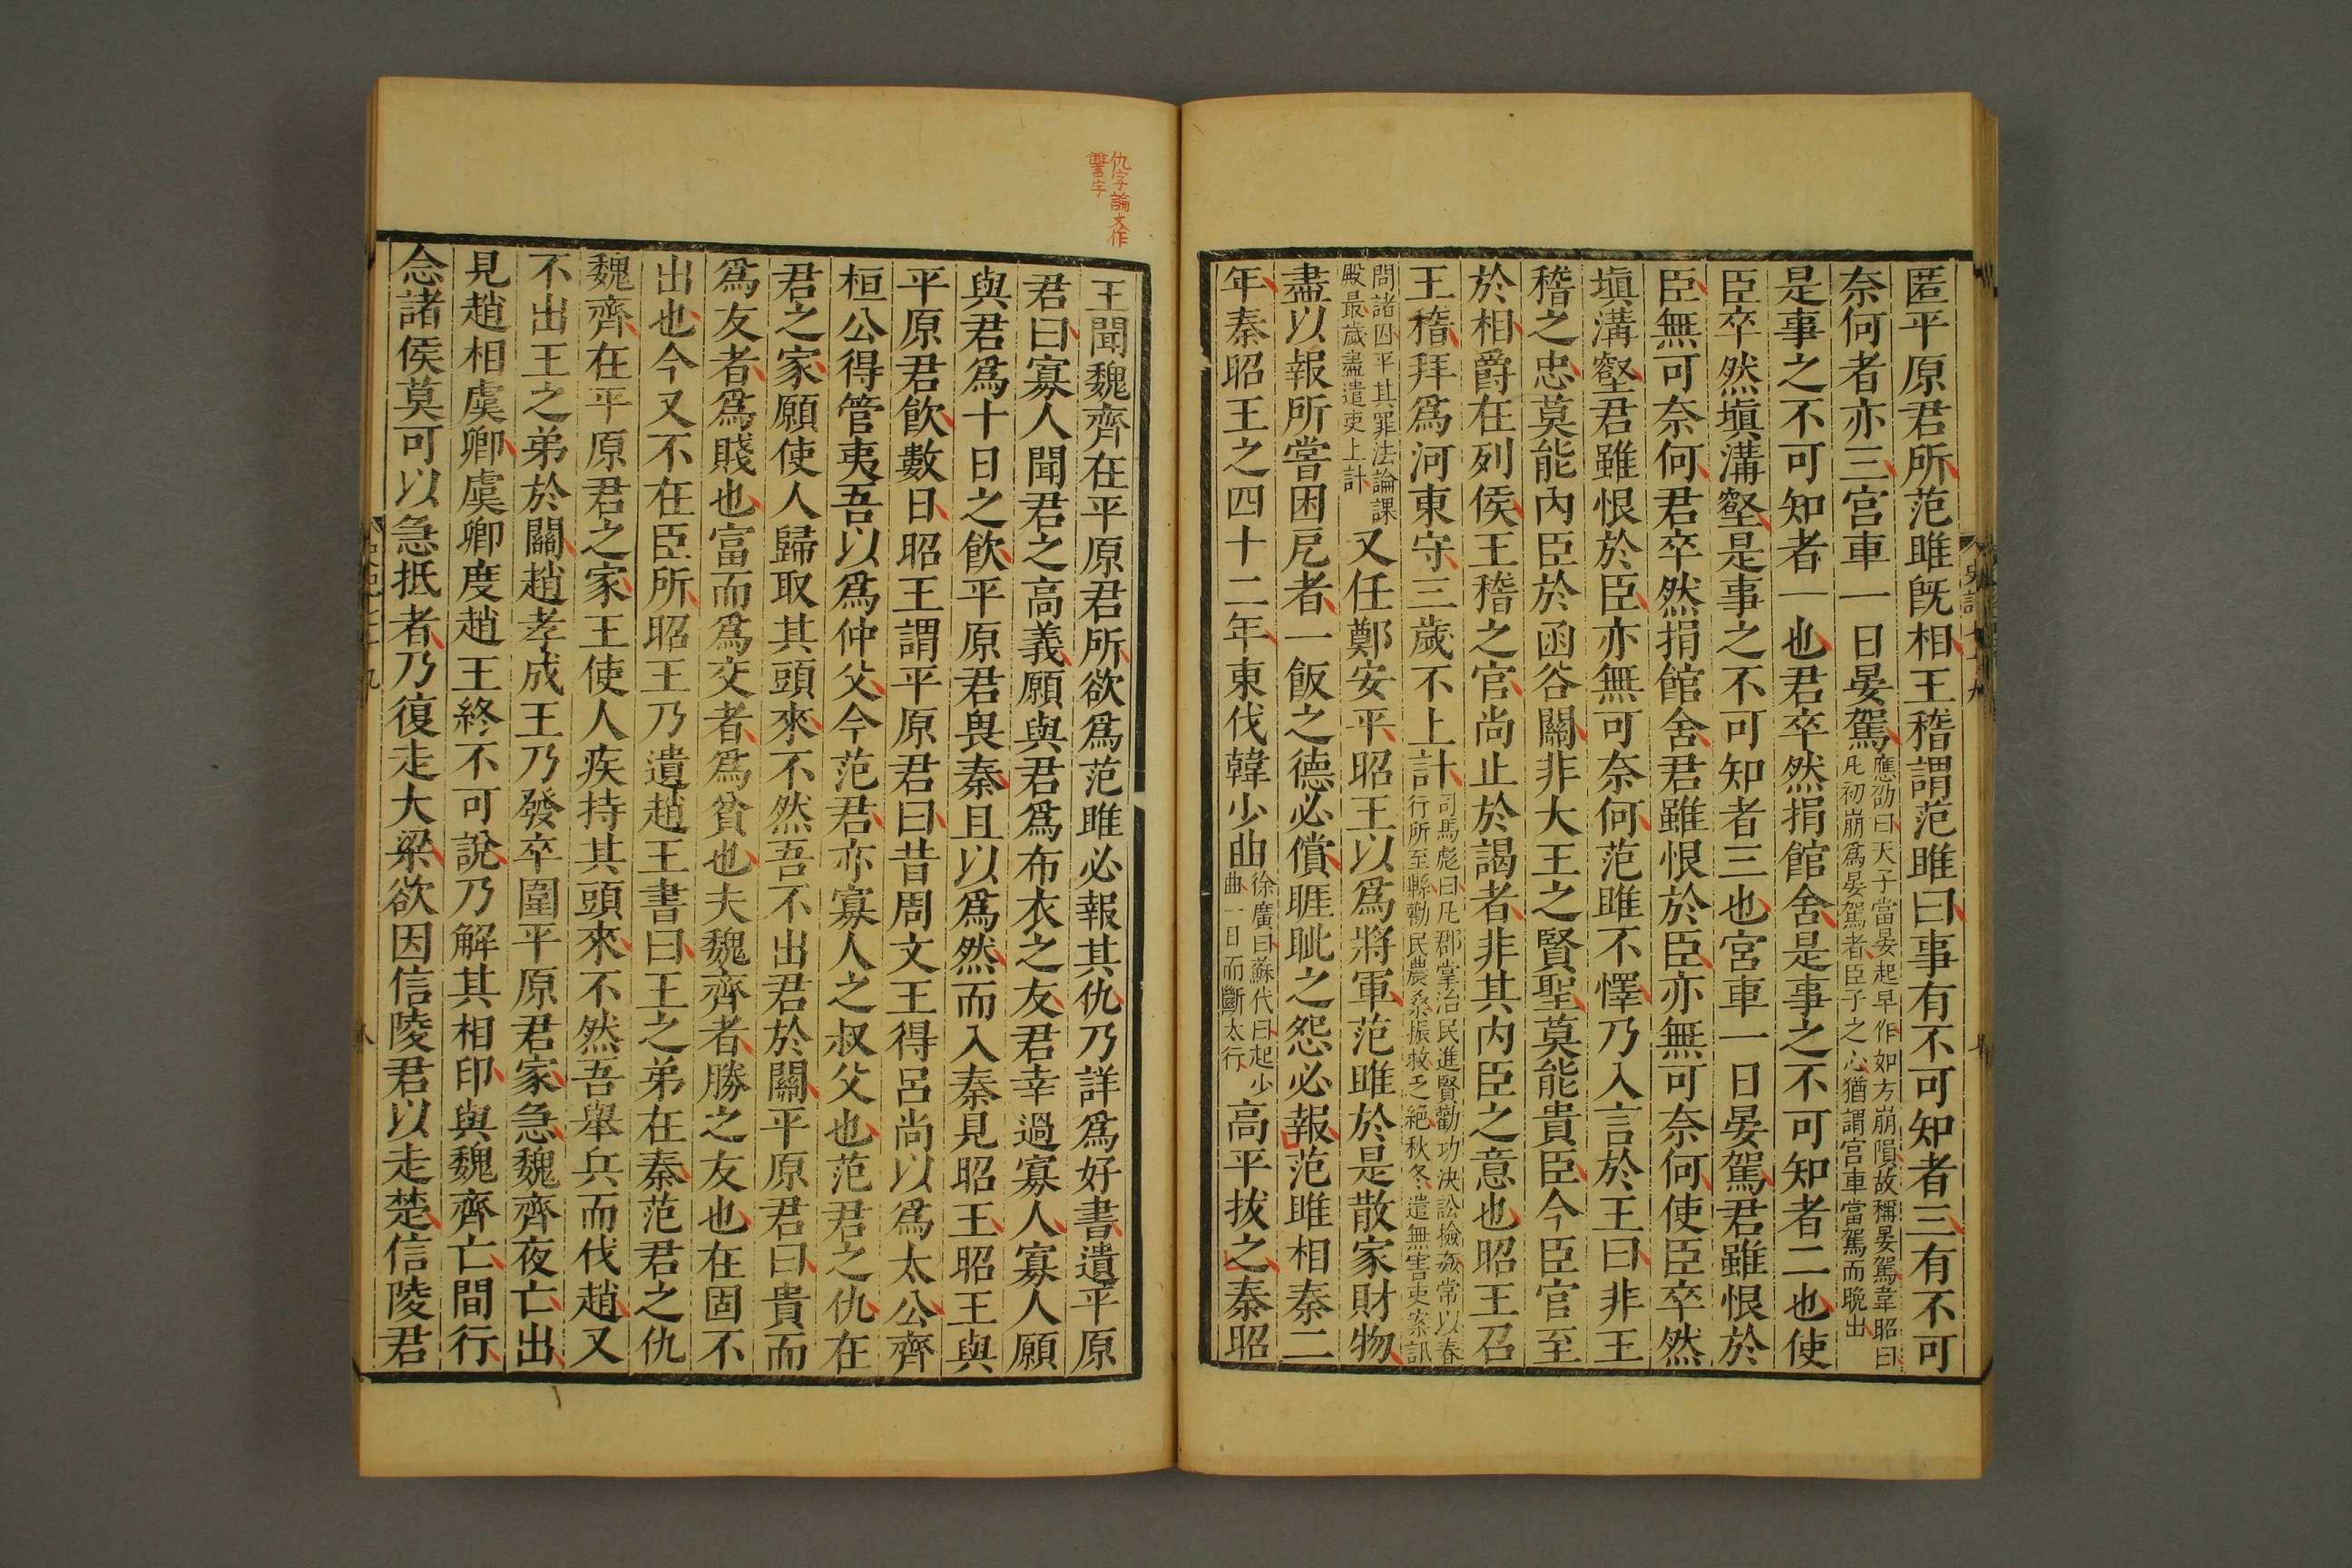 匿平原君所范雎旣相王稽謂范雎曰事有不可知者三有不可
奈何者亦三宮車一日晏駕應劭曰天子當晏起早作如方崩隕故稱晏駕韋昭曰
凡初崩爲晏駕者臣子之心猶謂宮車當駕而晩出
是事之不可知者一也君卒然捐館舍是事之不可知者二也使
臣卒然塡溝壑是事之不可知者三也宮車一日晏駕君雖恨於
臣無可奈何君卒然捐館舍君雖恨於臣亦無可奈何使臣卒然
塡溝壑君雖恨於臣亦無可奈何范雎不懌乃入言於王曰非王
稽之忠莫能內臣於函谷關非大王之賢聖莫能貴臣今臣官至
於相爵在列侯王稽之官尚止於謁者非其內臣之意也昭王召
王稽拜爲河東守三歲不上計司馬彪曰凡郡掌治民進賢勸功決訟檢姦常以春
行所至縣勸民農桑振救乏絕秋冬遣無害吏案訊
問諸囚平其罪法論課
殿最歲盡遣吏上計
又任鄭安平昭王以爲將軍范雎於是散家財物
盡以報所嘗困戹者一飯之德必償睚眦之怨必報范雎相秦二
年秦昭王之四十二年東伐韓少曲徐廣曰蘇代曰起少
曲一日而斷太行
高平拔之秦昭
史記七十九
仇字論文作
讐字
王聞魏齊在平原君所欲爲范雎必報其仇乃詳爲好書遺平原
君曰寡人聞君之高義願與君爲布衣之友君幸過寡人寡人願
與君爲十日之飮平原君畏秦且以爲然而入秦見昭王昭王與
平原君飮數日昭王謂平原君曰昔周文王得呂尚以爲太公齊
桓公得管夷吾以爲仲父今范君亦寡人之叔父也范君之仇在
君之家願使人歸取其頭來不然吾不出君於關平原君曰貴而
爲友者爲賤也富而爲交者爲貧也夫魏齊者勝之友也在固不
出也今又不在臣所昭王乃遺趙王書曰王之弟在秦范君之仇
魏齊在平原君之家王使人疾持其頭來不然吾舉兵而伐趙又
不出王之弟於關趙孝成王乃發卒圍平原君家急魏齊夜亡出
見趙相虞卿虞卿度趙王終不可說乃解其相印與魏齊亡間行
念諸侯莫可以急抵者乃復走大梁欲因信陵君以走楚信陵君